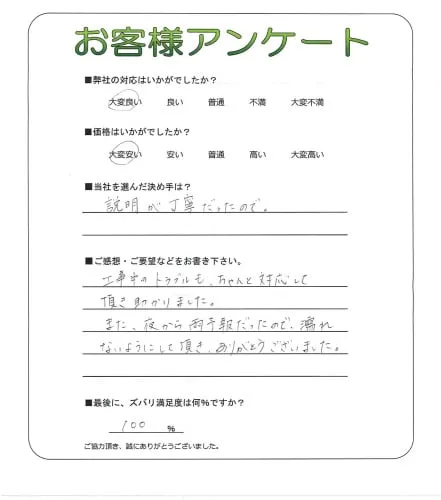 お客様アンケート
■弊社の対応はいかがでしたか？
大変良い 良い 普通 不満 大変不満
■価格はいかがでしたか？
大変安い 安い 普通 高い 大変高い
■当社を選んだ決め手は？
説明が丁寧だったので。
■ご感想・ご要望などをお書き下さい。
工事中のトラブルも、ちゃんと対応して
頂き助かりました。
また、夜から雨予報だったので、濡れ
ないようにして頂き、ありがとうございました。
■最後に、ズバリ満足度は何％ですか？
100 ％
ご協力頂き、誠にありがとうございました。